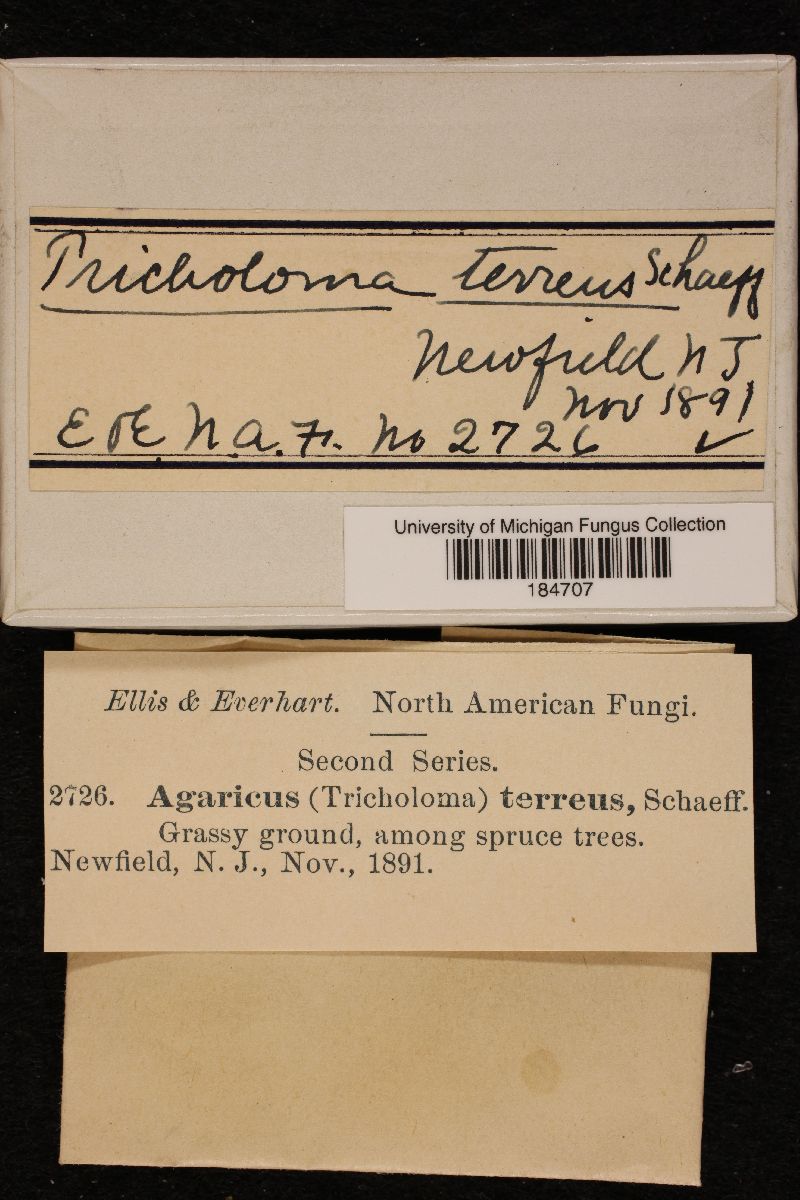 Tricholoma terreus Schaeff
Newfield N J
Nov 1891
E & E N. A. F. No 2726 ✓
University of Michigan Fungus Collection
184707
Ellis & Everhart. North American Fungi.
Second Series.
2726. Agaricus (Tricholoma) terreus, Schaeff.
Grassy ground, among spruce trees.
Newfield, N. J., Nov., 1891.